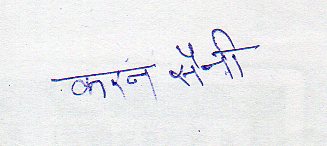 करन सैनी